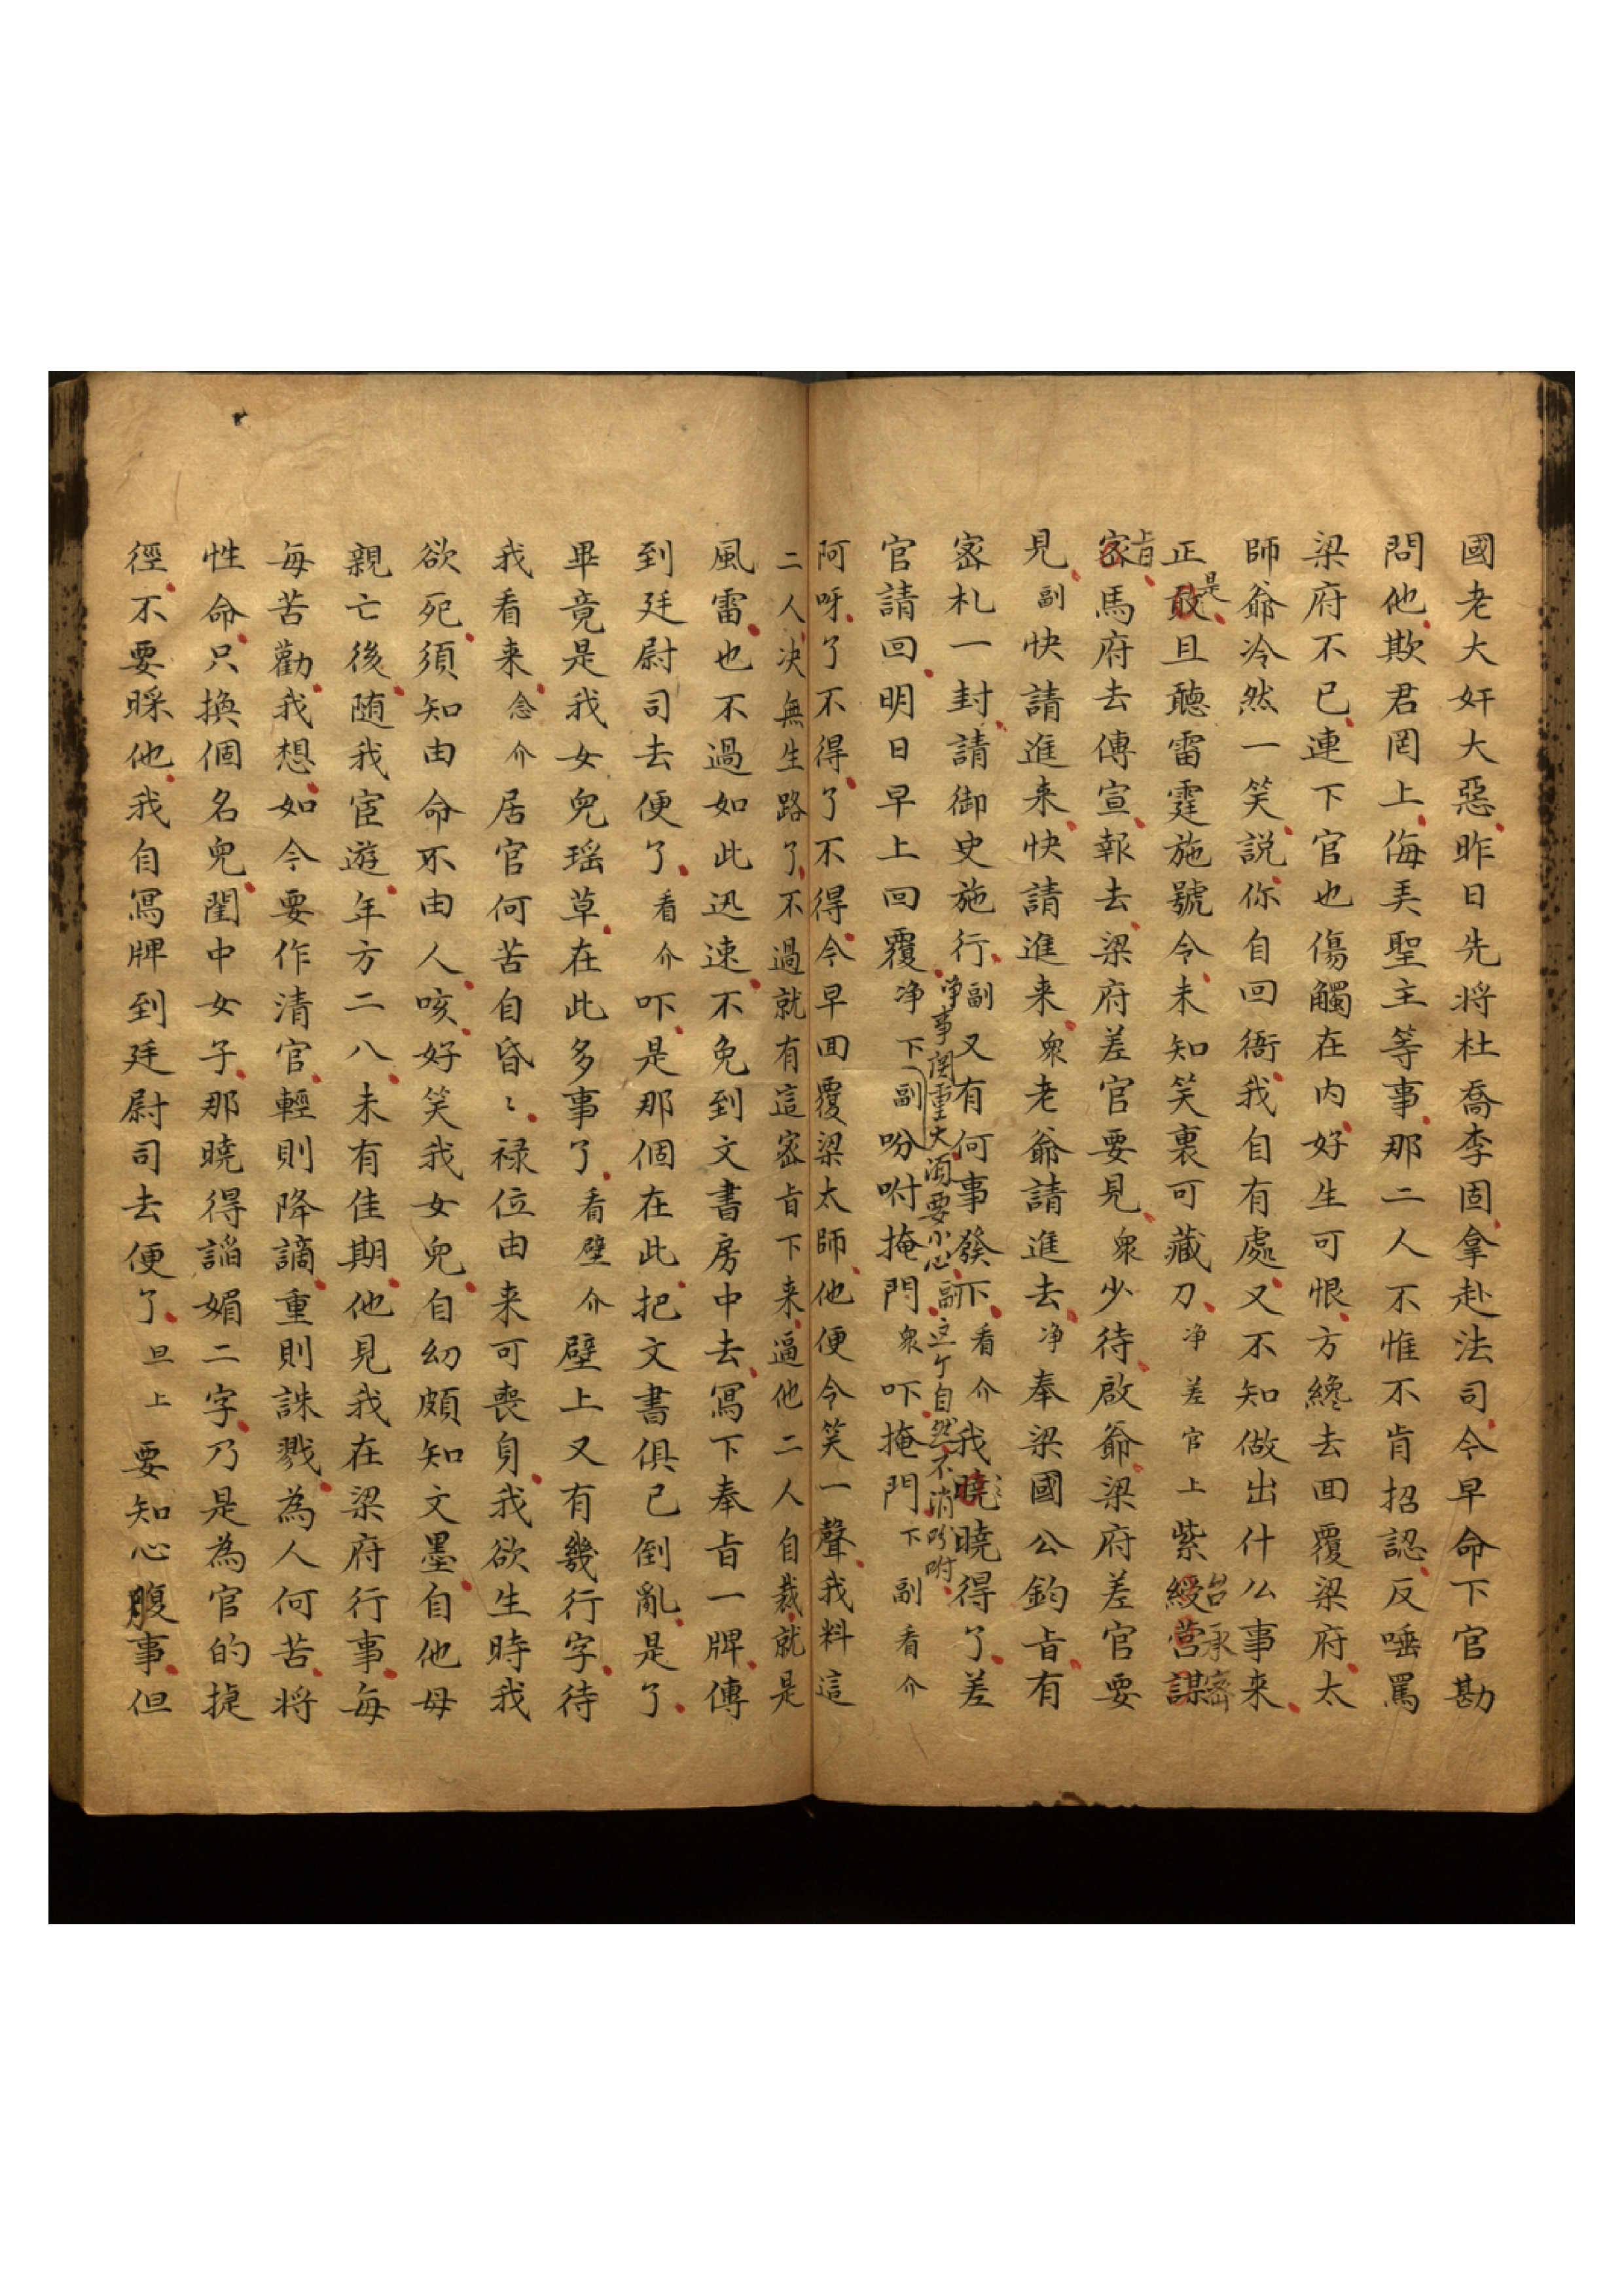 國老大奸大惡昨日先將杜喬李固拿赴法司今早命下官勘
問他欺君罔上侮弄聖主等事那二人不惟不肯招認反唾罵
梁府不已連下官也傷觸在內好生可恨方纔去回覆梁府太
師爺冷然一笑説你自回衙我自有處又不知做出什么事来
是
正敢且聽雷霆施號令未知笑裏可藏刀净差官上紫綬营謀
台承濟
旨
密馬府去傳宣報去梁府差官要見衆少待啟爺梁府差官要
見副快請進来快請進来衆老爺請進去净奉梁國公鈞旨有
密札一封請御史施行副又有何事發下看介我曉曉得了差
净事関重大須要小心副这个自然不消吩咐
官請回明日早上回覆净下副吩咐掩門衆吓掩門下副看介
阿呀了不得了不得今早回覆梁太師他便令笑一聲我料這
二人决無生路了不過就有這密旨下来逼他二人自裁就是
風雷也不過如此迅速不免到文書房中去寫下奉旨一牌傳
到廷尉司去便了看介吓是那個在此把文書俱已倒亂是了
畢竟是我女兒瑶草在此多事了看壁介壁上又有幾行字待
我看来念介居官何苦自昏〻禄位由来可喪身我欲生時我
欲死須知由命不由人咳好笑我女兒自幼頗知文墨自他母
親亡後随我宦遊年方二八未有佳期他見我在梁府行事每
每苦勸我想如今要作清官輕則降謫重則誅戮為人何苦将
性命只換個名兒閨中女子那曉得謟媚二字乃是為官的捷
徑不要睬他我自寫牌到廷尉司去便了旦上要知心腹事但